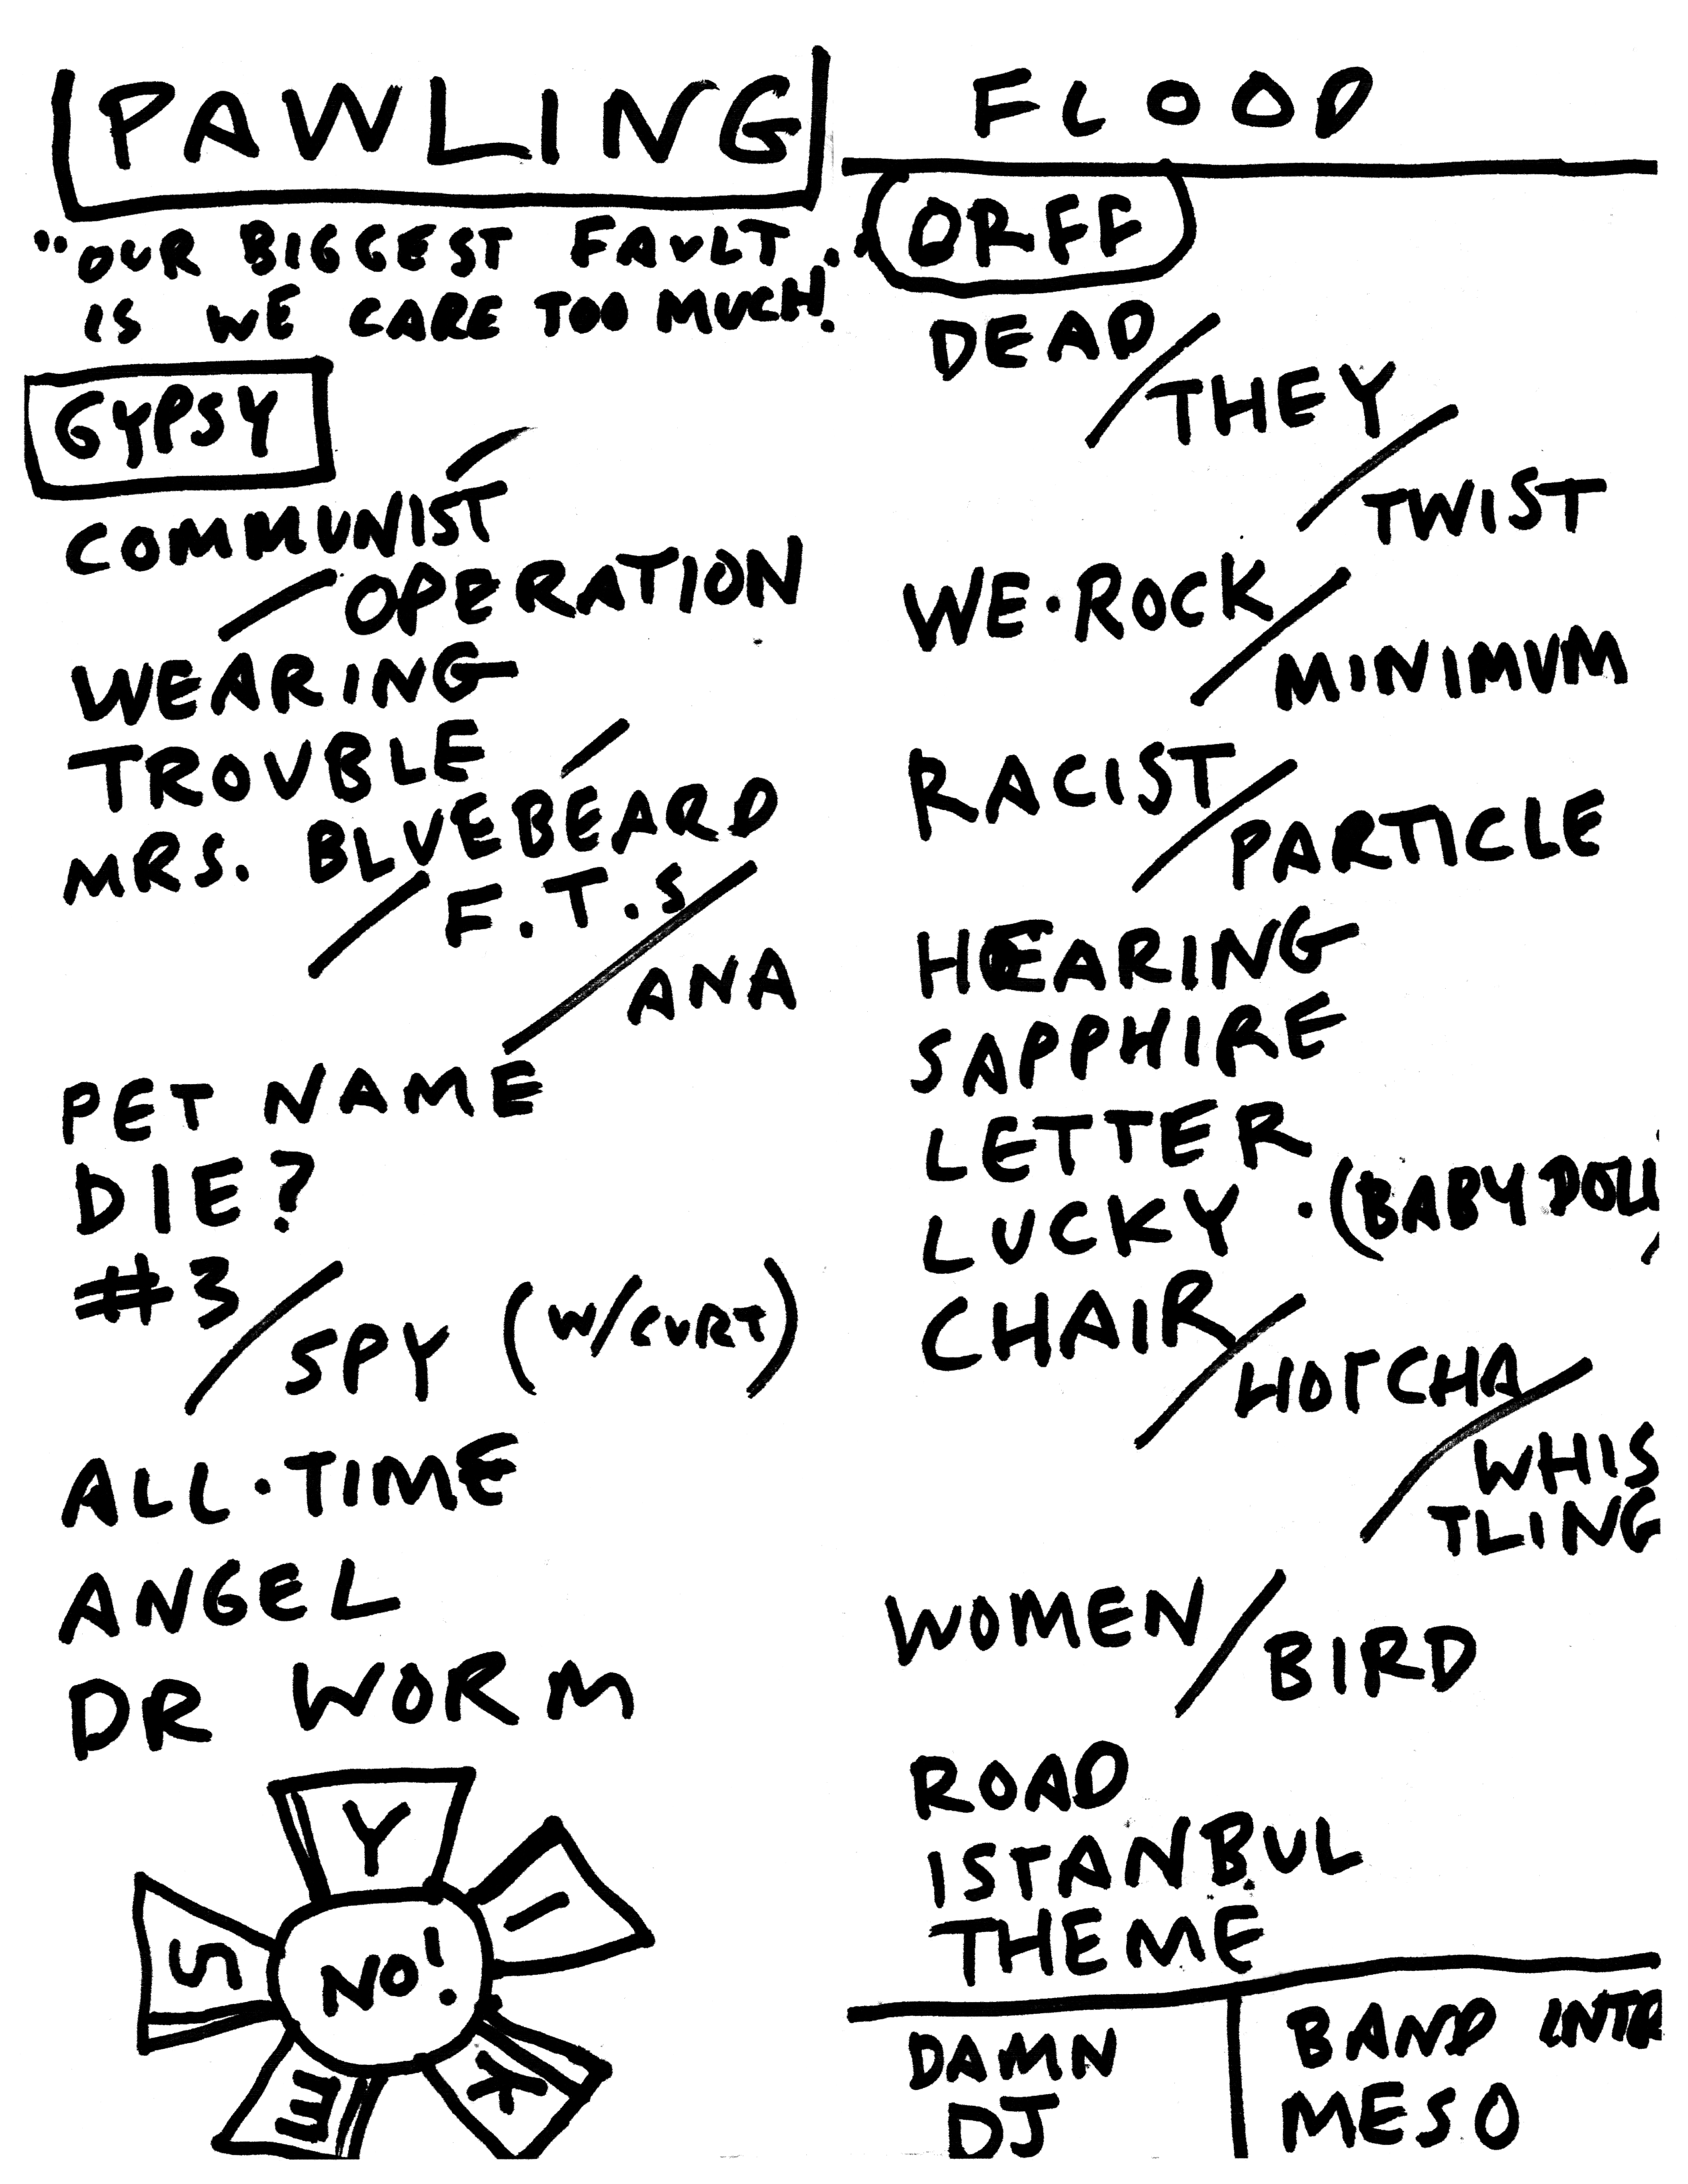 PAWLING
"OUR BIGGEST FAULT
IS WE CARE TOO MUCH!"
GYPSY
COMMUNIST /
/ OPERATION
WEARING
TROUBLE
MRS. BLUEBEARD /
/ F.T.S
/ ANA
PET NAME
DIE?
#3
/ SPY (W/CURT)
ALL·TIME
ANGEL
DR WORM
Y
I
S
NO!
E
K
FLOOD
ORFF
DEAD
/ THEY
/ TWIST
WE·ROCK
/ MINIMUM
RACIST
/ PARTICLE
HEARING
SAPPHIRE
LETTER
LUCKY · (BABY DOLL)
CHAIR
/ HOTCHA
/ WHIS
TLING
WOMEN
/ BIRD
ROAD
ISTANBUL
THEME
DAMN
DJ
BAND INTR
MESO